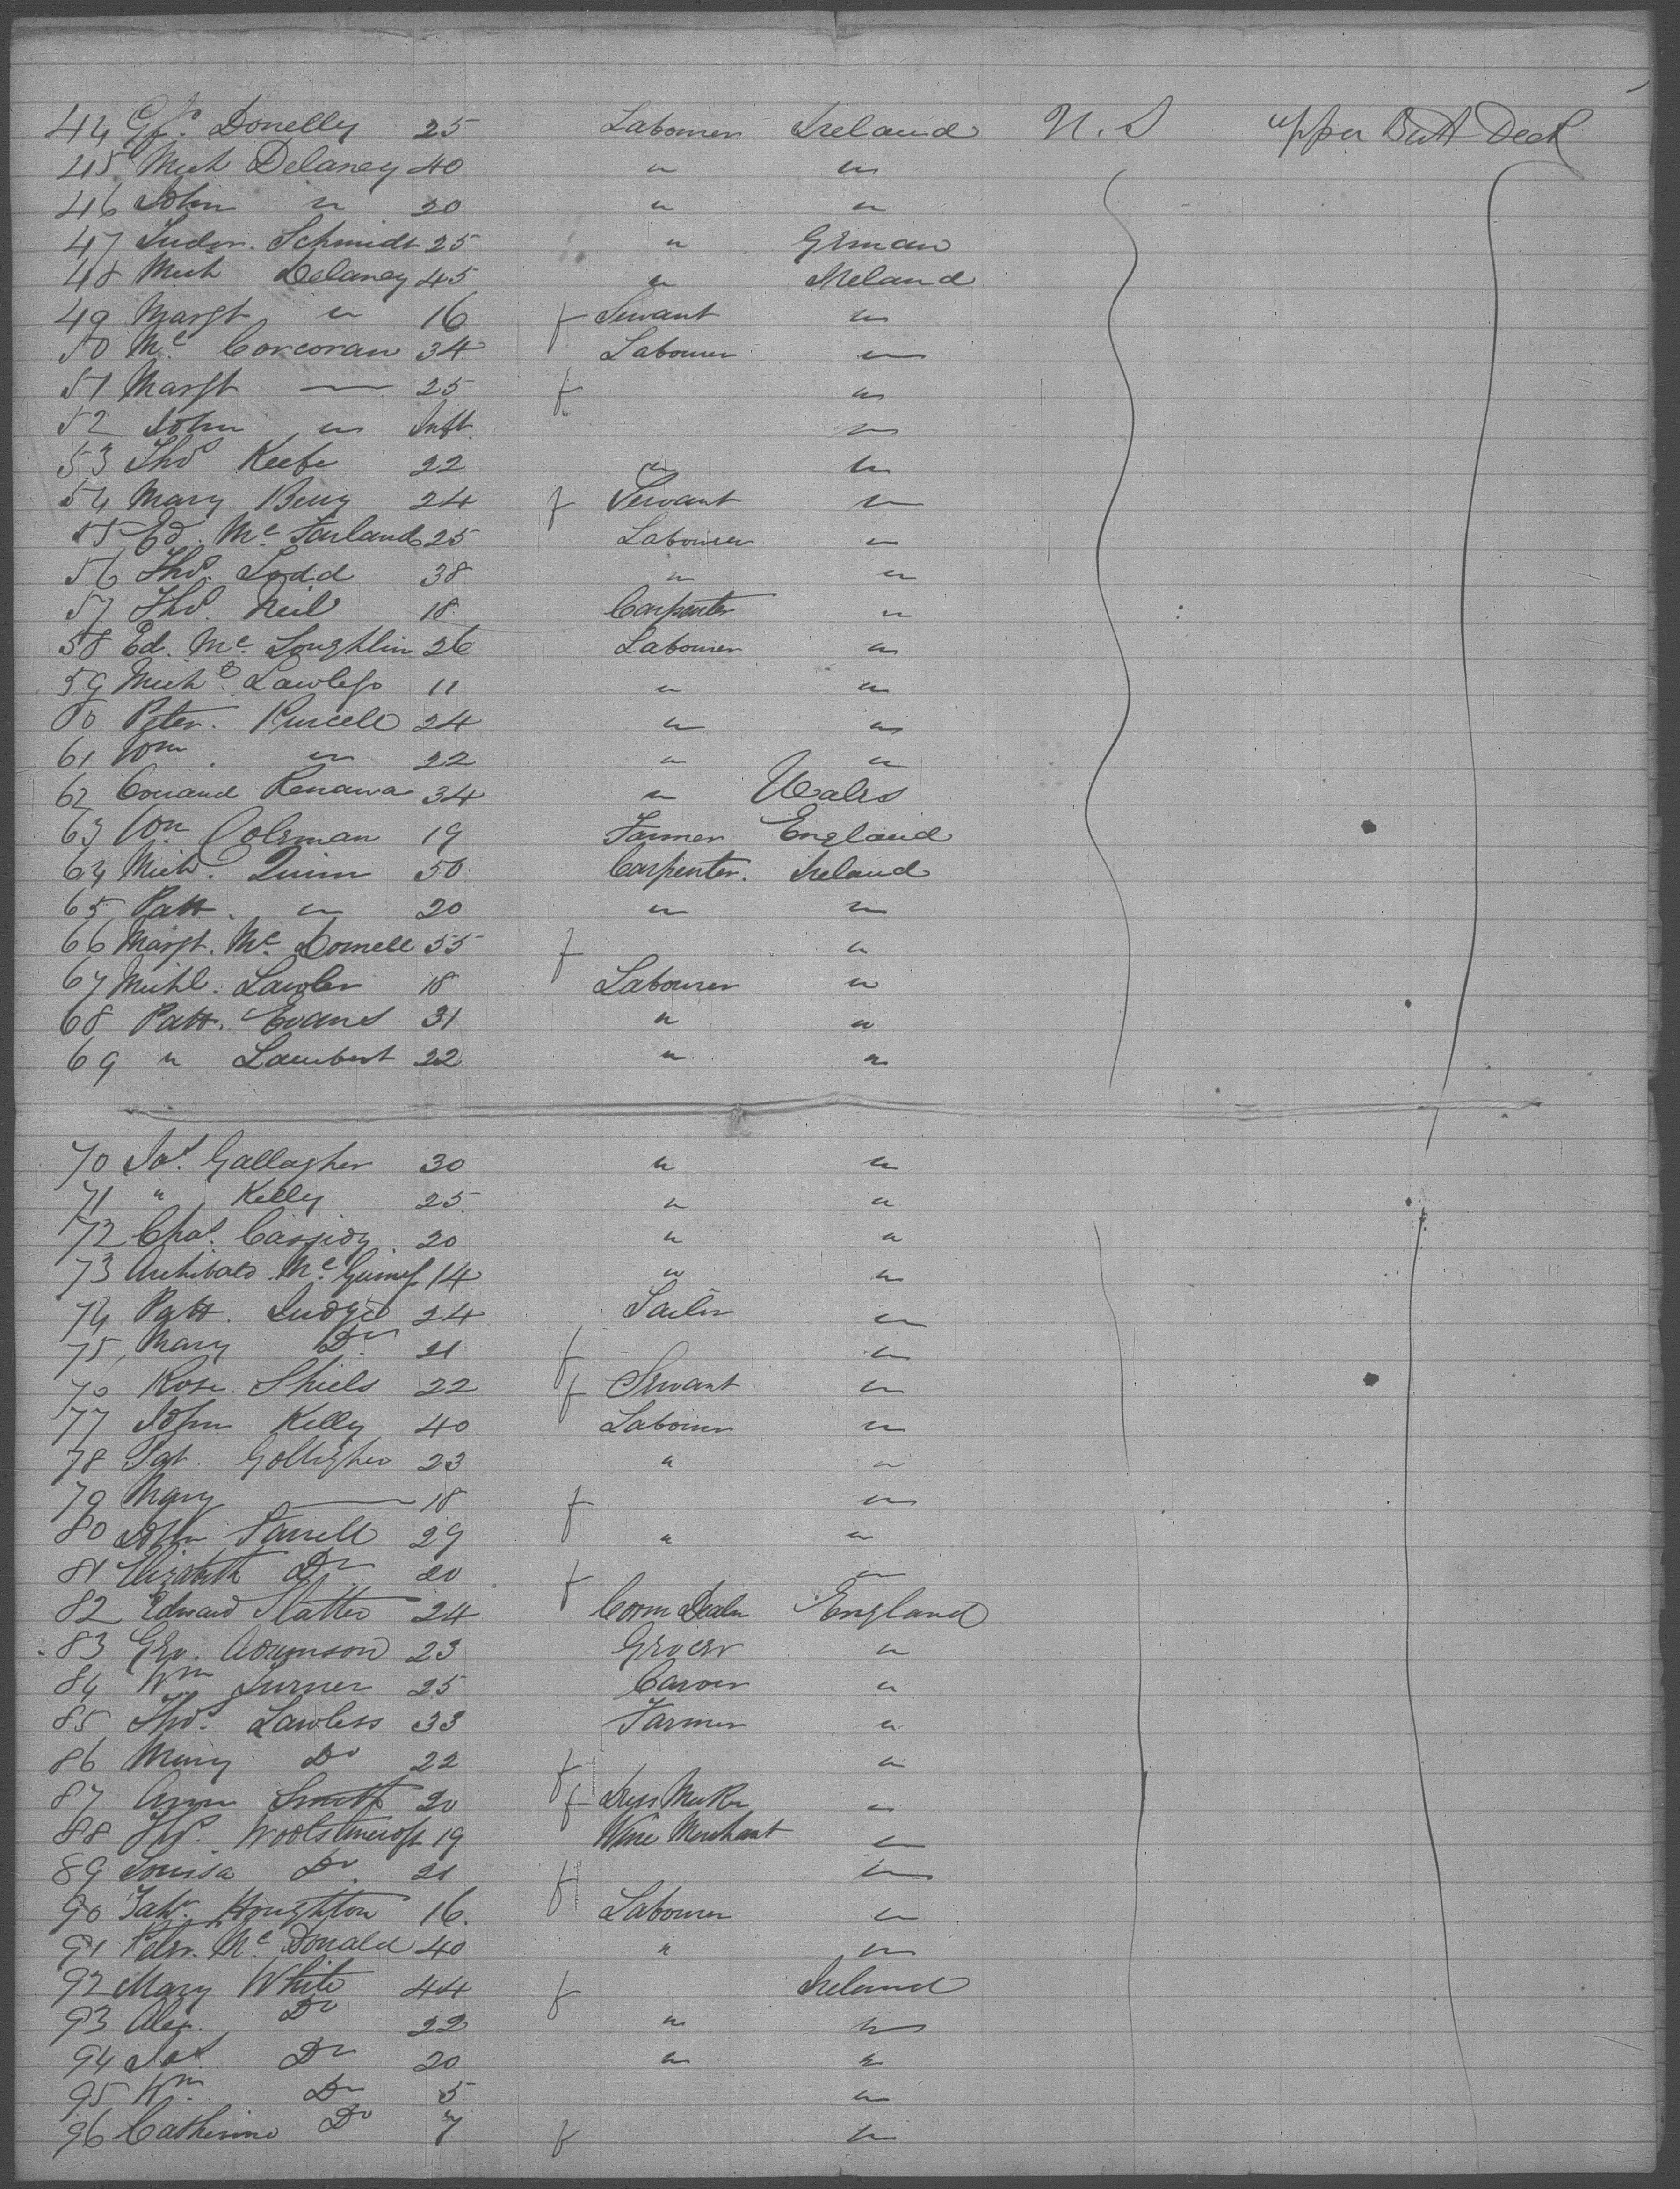 44 Donelly 25 Labourer Ireland U.S upper Betw Deck
45 Mich Delaney 40 " "
46 John " 20 " "
47 Ludov. Schmidt 25 " German
48 Mich Delaney 45 " Ireland
49 Margt " 16 f Servant "
50 Mc Corcoran 34 Labourer "
51 Margt — 25 f "
52 John " Inft. "
53 Thos Keefe 22 " "
54 Mary Berry 24 f Servant "
55 Ed. Mc Farland 25 Labourer "
56 Thos. Todd 38 " "
57 Thos. Neil 18 Carpenter "
58 Ed. Mc Loughlin 26 Labourer "
59 Mich. Lawless 11 " "
60 Peter. Purcell 24 " "
61 Wm. " 22 " "
62 Renawa 34 " Wales
63 Wm Colsman 19 Farmer England
64 Mich. Quinn 50 Carpenter. Ireland
65 Patt. " 20 " "
66 Margt. Mc Donnell 55 f "
67 Michl. Lawler 18 Labourer "
68 Patt. Evans 31 " "
69 " Lambert 22 " "
70 Jas. Gallagher 30 " "
71 " Kelly 25 " "
72 Chas. Cassidy 20 " "
73 Archibald Mc 14 " "
74 Patt. Judge 24 "
75 Mary Do 21 f "
76 Rose Shiels 22 f Servant "
77 John Kelly 40 Labourer "
78 Pat. Golligher 23 " "
79 Mary — 18 f "
80 John Farrell 29 " "
81 Elizabeth Do 20 f "
82 Edward Slatter 24 Corn Dealer England
83 Geo. Adamson 23 Grocer "
84 Wm Turner 25 Carver "
85 Thos. Lawless 33 Farmer "
86 Mary Do 22 f "
87 Ann Smith 20 f Dress Maker "
88 Thos. Woolstencroft 19 Wine Merchant "
89 Louisa Do. 21 f "
90 Houghton 16. Labourer "
91 Peter. Mc Donald 40 " "
92 Mary White 44 f Ireland
93 Alex. Do 22 " "
94 Jas Do 20 " "
95 Wm. Do 5 "
96 Catherine Do 7 f "